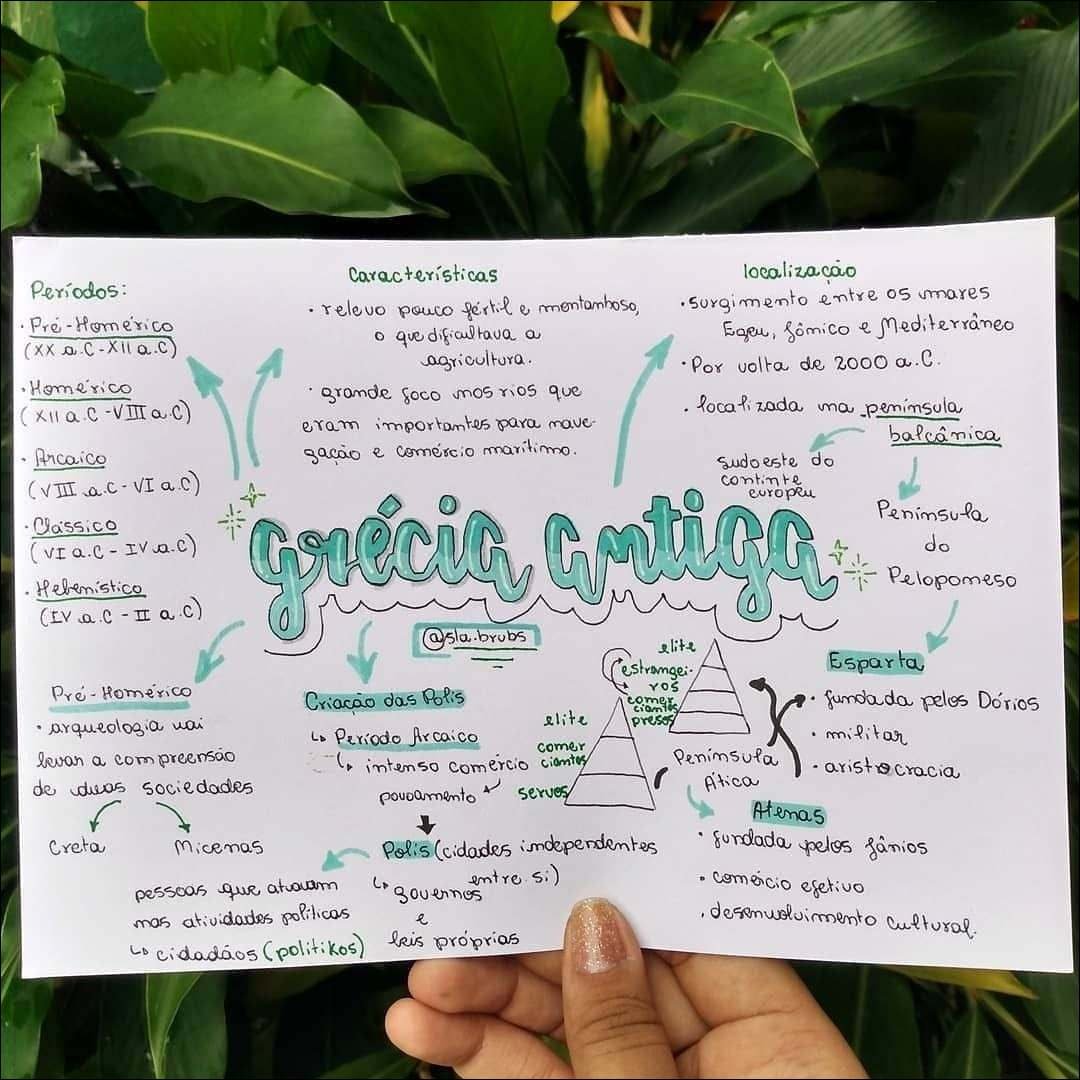 Períodos:
· Pré-Homérico
(XX a.C - XII a.C)
· Homérico
(XII a.C - VIII a.C)
· Arcaico
(VIII a.C - VI a.C)
· Clássico
(VI a.C - IV a.C)
· Helenístico
(IV a.C - II a.C)
Características
· relevo pouco fértil e montanhoso,
o que dificultava a
agricultura.
· grande foco nos rios que
eram importantes para nave-
gação e comércio marítimo.
localização
· Surgimento entre os mares
Egeu, Jômico e Mediterrâneo
· Por volta de 2000 a.C.
· localizada na península
balcânica
sudoeste do
continte
europeu
Península
do
Peloponeso
grécia antiga
@sla.brubs
Pré-Homérico
· arqueologia vai
levar a compreensão
de duas sociedades
Creta
Micenas
Criação das Polis
↳ Período Arcaico
↳ intenso comércio
povoamento
Polis (cidades independentes
entre si)
↳ governos
e
leis próprias
pessoas que atuavam
nas atividades políticas
↳ cidadãos (politikos)
elite
estrangei-
ros
comer
ciantes
presos
elite
comer
ciantes
servos
Esparta
· fundada pelos Dórios
· militar
· aristocracia
Península
Ática
Atenas
· fundada pelos Jânios
· comércio efetivo
· desenvolvimento cultural.